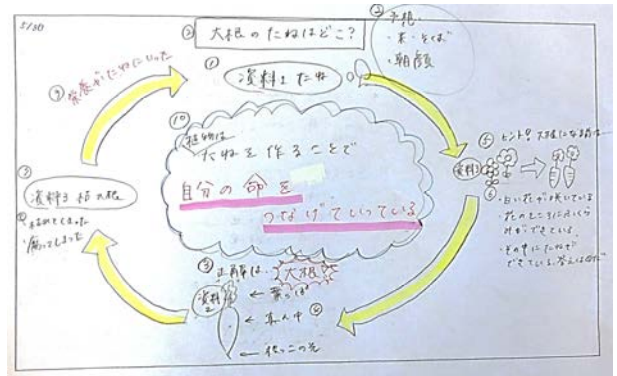 5/30
② 大根のたねはどこ？
③ 予想
・葉・そくば
・朝顔
① 資料1 たね
⑨ 栄養がたねにいった
⑩ 植物は
たねを作ることで
自分の命を
つなげていっている
⑤ ヒント！大根になる前は
資料3
⑥
・白い花が咲いている
・花のところにふくらみができている。
・その中にたねができている。
資料3 枯大根
・枯れてしまった
・腐ってしまった
③ 正解は、大根
資料2
← 葉っぱ
← 真ん中 ④
← 根っこの先